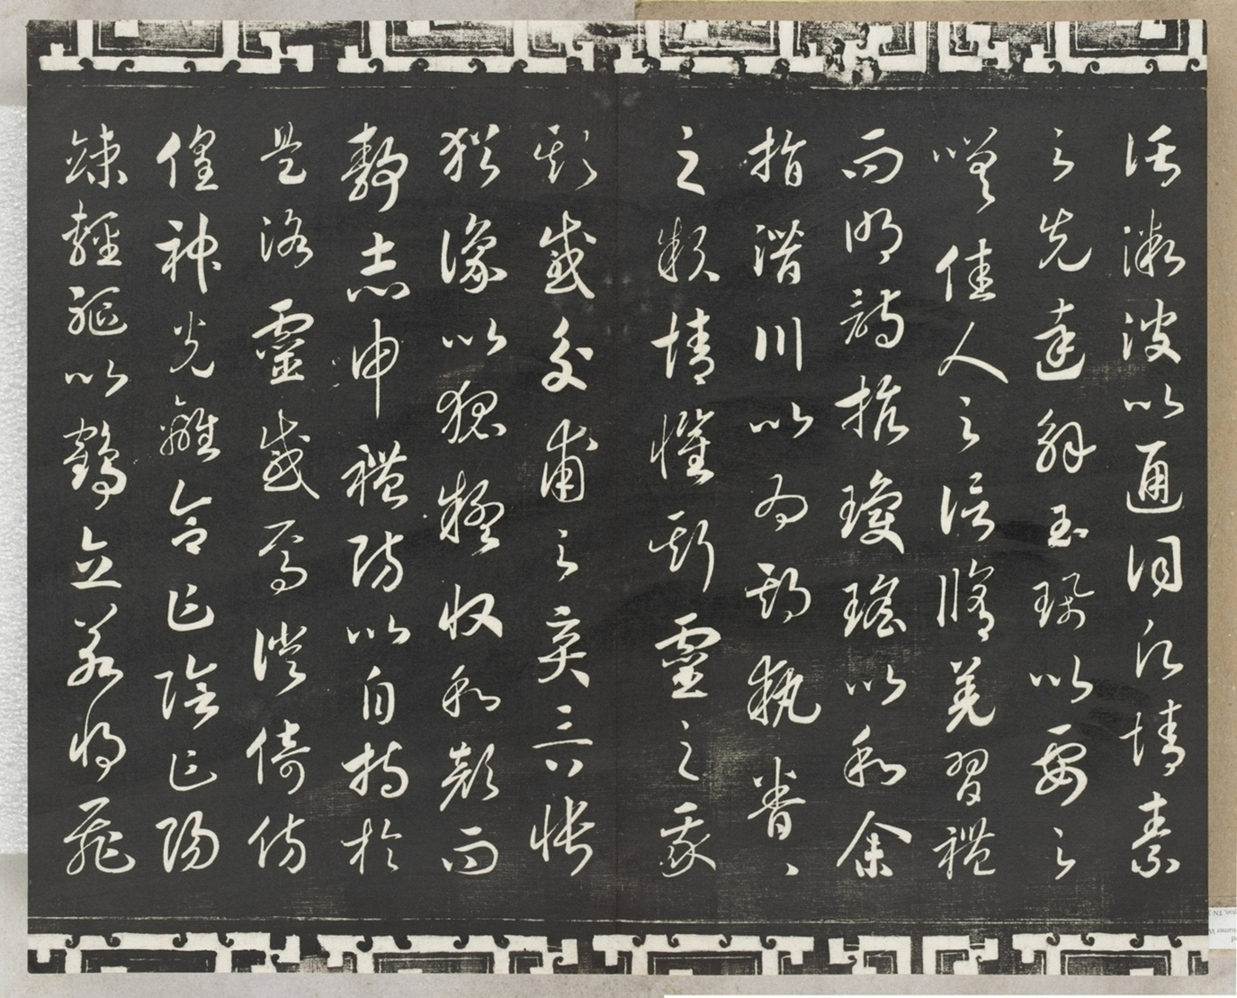 託微波以通詞願情素
之先達解玉珮以要之
嗟佳人之信脩羌習禮
而明詩抗瓊瑤以和余
指潛川以為期執眷〻
之款情懼斯靈之我
欺感交甫之棄言悵
猶豫以狐疑收和顏而
靜志申禮防以自持於
是洛靈感焉徙倚彷
徨神光離合乍陰乍陽
竦輕軀以鶴立若將飛